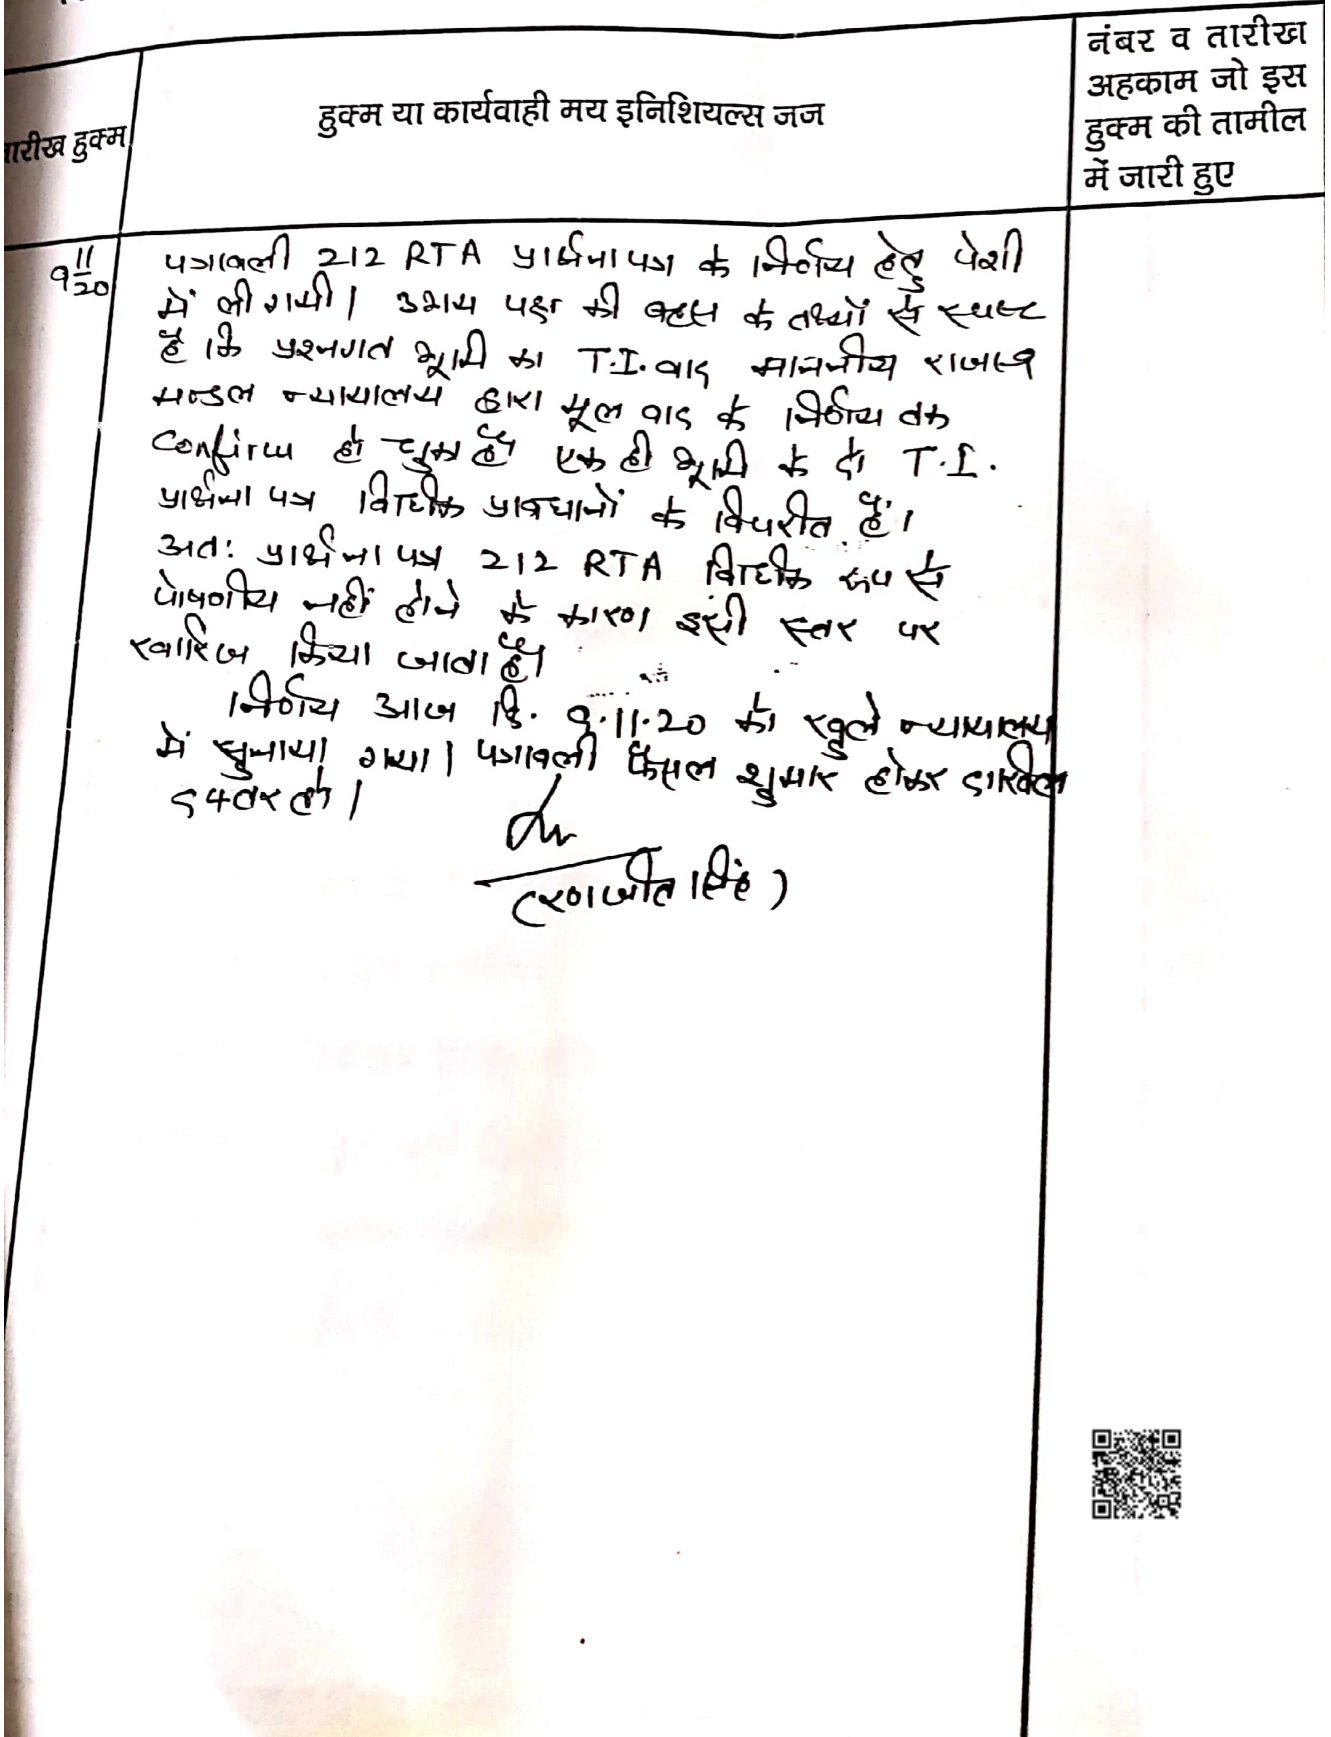 नंबर व तारीख
अहकाम जो इस
हुक्म की तामील
में जारी हुए
हुक्म या कार्यवाही मय इनिशियल्स जज
तारीख हुक्म
9 11/20
पत्रावली 212 RTA प्रार्थना पत्र के निर्णय हेतु पेशी
में ली गयी। उभय पक्ष की बहस के तथ्यों से स्पष्ट
है कि प्रश्नगत भूमि का T.I. वाद माननीय राजस्व
मण्डल न्यायालय द्वारा मूल वाद के निर्णय तक
Confirm हो चुका है। एक ही भूमि के दो T.I.
प्रार्थना पत्र विधिक प्रावधानों के विपरीत है।
अतः प्रार्थना पत्र 212 RTA विधिक रूप से
पोषणीय नहीं होने के कारण इसी स्तर पर
खारिज किया जाता है।
निर्णय आज दि. 9.11.20 को खुले न्यायालय
में सुनाया गया। पत्रावली फैसल शुमार होकर दाखिल
दफ्तर हो।
(रणजीत सिंह)